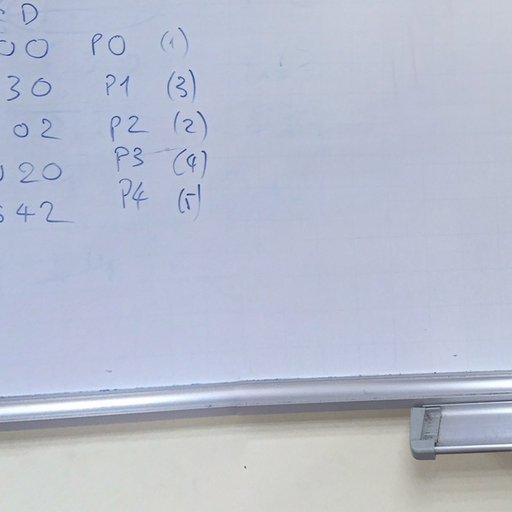 C D
00 P0 (1)
30 P1 (3)
02 P2 (2)
20 P3 (4)
42 P4 (5)